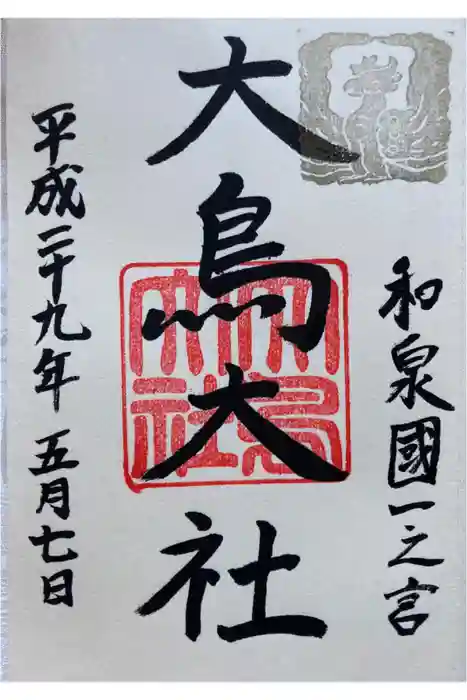 和泉國一之宮
大鳥大社
大鳥大社
平成二十九年五月七日